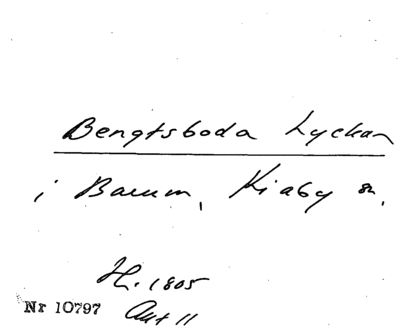 Bengtsboda Lyckan
i Barum, Kiaby sn.
H. 1805
Nr 10797 Akt 11